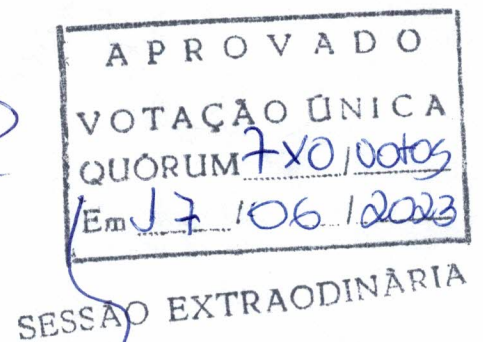 APROVADO
VOTAÇÃO ÚNICA
QUÓRUM 7X0 votos
Em 17/06/2023
SESSÃO EXTRAODINÀRIA